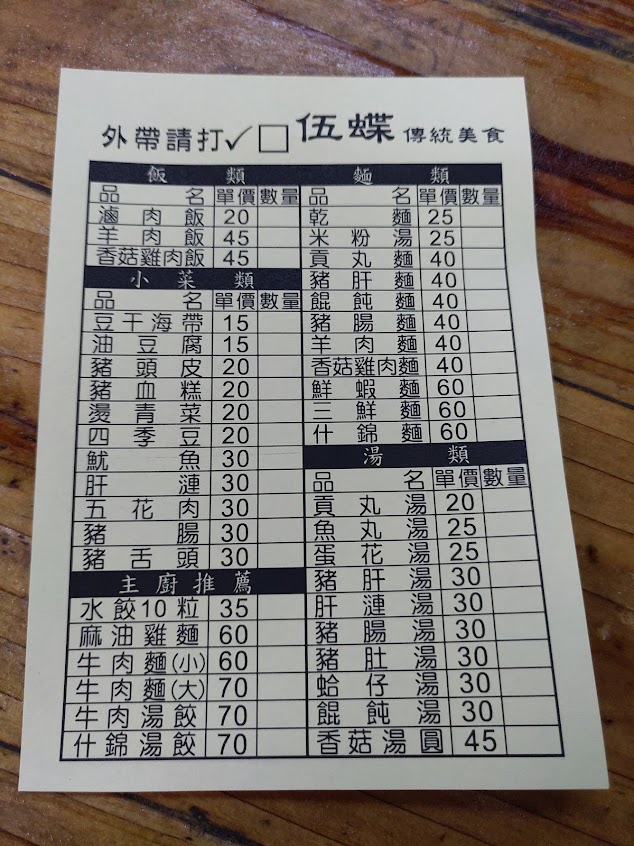 外帶請打✓□ 伍蝶 傳統美食
飯類
品名 單價 數量
滷肉飯 20
羊肉飯 45
香菇雞肉飯 45
小菜類
品名 單價 數量
豆干海帶 15
油豆腐 15
豬頭皮 20
豬血糕 20
燙青菜 20
四季豆 20
魷魚 30
肝連 30
五花肉 30
豬腸 30
豬舌頭 30
主廚推薦
水餃10粒 35
麻油雞麵 60
牛肉麵(小) 60
牛肉麵(大) 70
牛肉湯餃 70
什錦湯餃 70
麵類
品名 單價 數量
乾麵 25
米粉湯 25
貢丸麵 40
豬肝麵 40
餛飩麵 40
豬腸麵 40
羊肉麵 40
香菇雞肉麵 40
鮮蝦麵 60
三鮮麵 60
什錦麵 60
湯類
品名 單價 數量
貢丸湯 20
魚丸湯 25
蛋花湯 25
豬肝湯 30
肝漣湯 30
豬腸湯 30
豬肚湯 30
蛤仔湯 30
餛飩湯 30
香菇湯圓 45